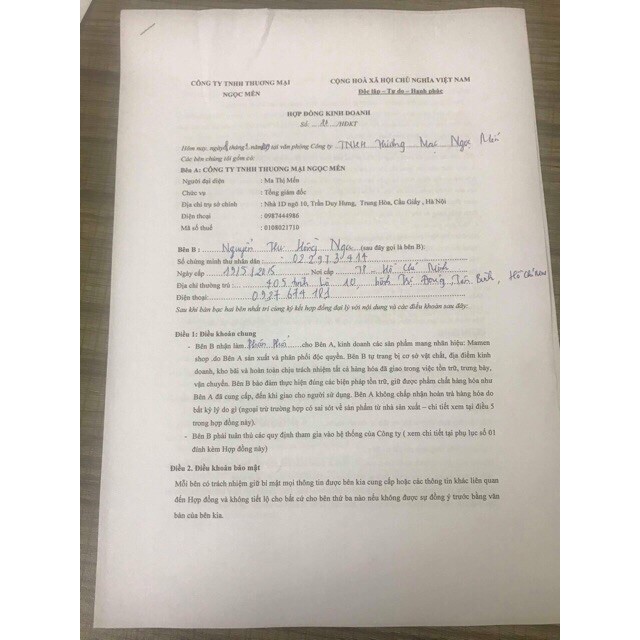 CÔNG TY TNHH THƯƠNG MẠI
NGỌC MẾN
CỘNG HOÀ XÃ HỘI CHỦ NGHĨA VIỆT NAM
Độc lập – Tự do – Hạnh phúc
HỢP ĐỒNG KINH DOANH
Số: /HĐKT
Hôm nay, ngày tháng năm tại văn phòng Công ty TNHH Thương Mại Ngọc Mến
Các bên chúng tôi gồm có:
Bên A: CÔNG TY TNHH THƯƠNG MẠI NGỌC MẾN
Người đại diện : Ma Thị Mến
Chức vụ : Tổng giám đốc
Địa chỉ trụ sở chính : Nhà 1D ngõ 10, Trần Duy Hưng, Trung Hòa, Cầu Giấy , Hà Nội
Điện thoại : 0987444986
Mã số thuế : 0108021710
Bên B : Nguyễn Thu Hồng Ngọc (sau đây gọi là bên B):
Số chứng minh thư nhân dân :
Ngày cấp 19/5/2015 Nơi cấp TP - Hồ Chí Minh
Địa chỉ thường trú : 905 tỉnh lộ 10, bình Trị Đông, Tân Bình, Hồ Chí Minh
Điện thoại: 0927 674 181
Sau khi bàn bạc hai bên nhất trí cùng ký kết hợp đồng đại lý với nội dung và các điều khoản sau đây:
Điều 1: Điều khoản chung
- Bên B nhận làm Phân Phối cho Bên A, kinh doanh các sản phẩm mang nhãn hiệu: Mamen
shop .do Bên A sản xuất và phân phối độc quyền. Bên B tự trang bị cơ sở vật chất, địa điểm kinh
doanh, kho bãi và hoàn toàn chịu trách nhiệm tất cả hàng hóa đã giao trong việc tồn trữ, trưng bày,
vận chuyển. Bên B bảo đảm thực hiện đúng các biện pháp tồn trữ, giữ được phẩm chất hàng hóa như
Bên A đã cung cấp, đến khi giao cho người sử dụng. Bên A không chấp nhận hoàn trả hàng hóa do
bất kỳ lý do gì (ngoại trừ trường hợp có sai sót về sản phẩm từ nhà sản xuất – chi tiết xem tại điều 5
trong hợp đồng này).
- Bên B phải tuân thủ các quy định tham gia vào hệ thống của Công ty ( xem chi tiết tại phụ lục số 01
đính kèm Hợp đồng này)
Điều 2. Điều khoản bảo mật
Mỗi bên có trách nhiệm giữ bí mật mọi thông tin được bên kia cung cấp hoặc các thông tin khác liên quan
đến Hợp đồng và không tiết lộ cho bất cứ cho bên thứ ba nào nếu không được sự đồng ý trước bằng văn
bản của bên kia.